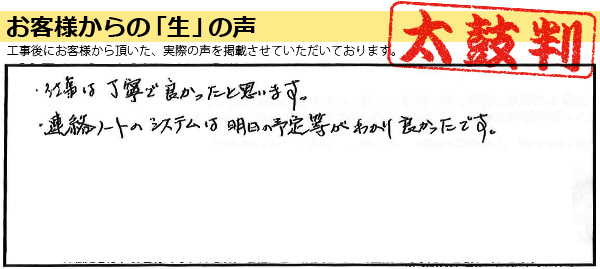 お客様からの「生」の声
太鼓判
工事後にお客様から頂いた、実際の声を掲載させていただいております。
・仕事は丁寧で良かったと思います。
・連絡ノートのシステムは明日の予定等がわかり良かったです。